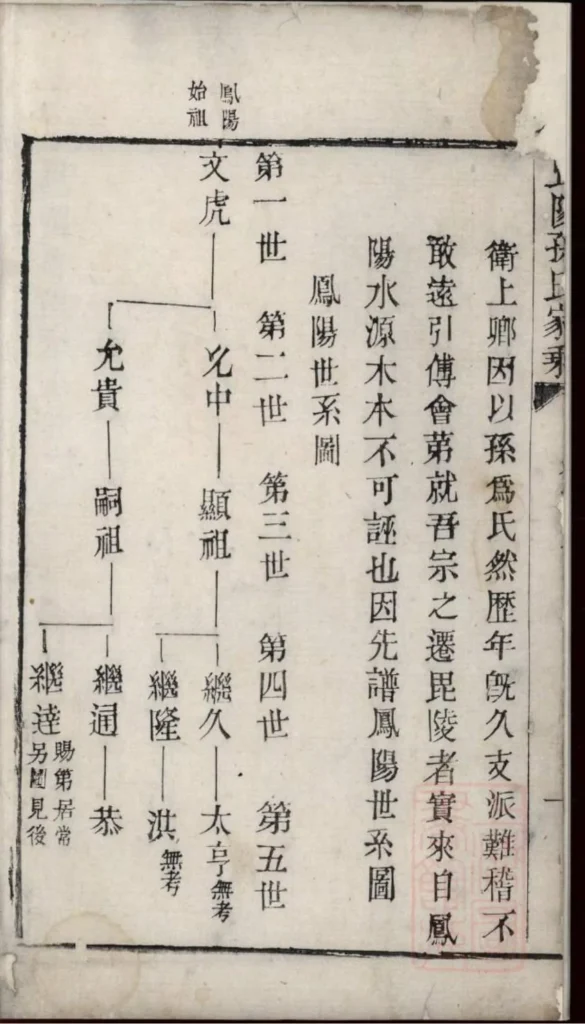 孫氏家乘
衛上卿因以孫爲氏然歴年旣久支派難稽不
敢遠引傅會苐就吾宗之遷毘陵者實來自鳳
陽水源木本不可誣也因先譜鳳陽世系圖
鳳陽世系圖
第一世 第二世 第三世 第四世 第五世
鳳陽
始祖
文虎
允中 顯祖 繼久 太亨 無考
繼隆 洪 無考
允貴 嗣祖 繼通 恭
繼達 賜第居常
另圖見後
一